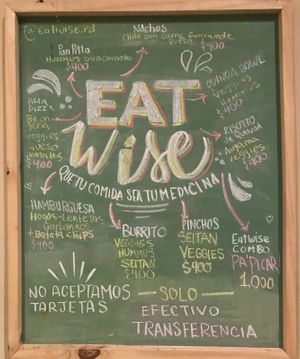 @Eatwise.rd
NACHOS
Chile sin carne Guacamole
queso
$400
Pan Pita
HUMMUS Guacamole
$400
QUINOA BOWL
VEGGIES
HUMMUS
$400
Pita
Pizza
Berenjena
veggies
queso
tomates
$400
RISOTTO
DE QUINOA
veggies
$400
EAT
Wise
QUE TU COMIDA SEA TU MEDICINA
HAMBURGUESA
Hogos-Lentejas
Garbanzos
+Batata chips
$400
BURRITO
VEGGIES
HUMMUS
SEITAN
$400
PINCHOS
SEITAN
VEGGIES
$400
Eatwise
COMBO
PA'PICAR
1,000
NO ACEPTAMOS
TARJETAS
SOLO
EFECTIVO
TRANSFERENCIA